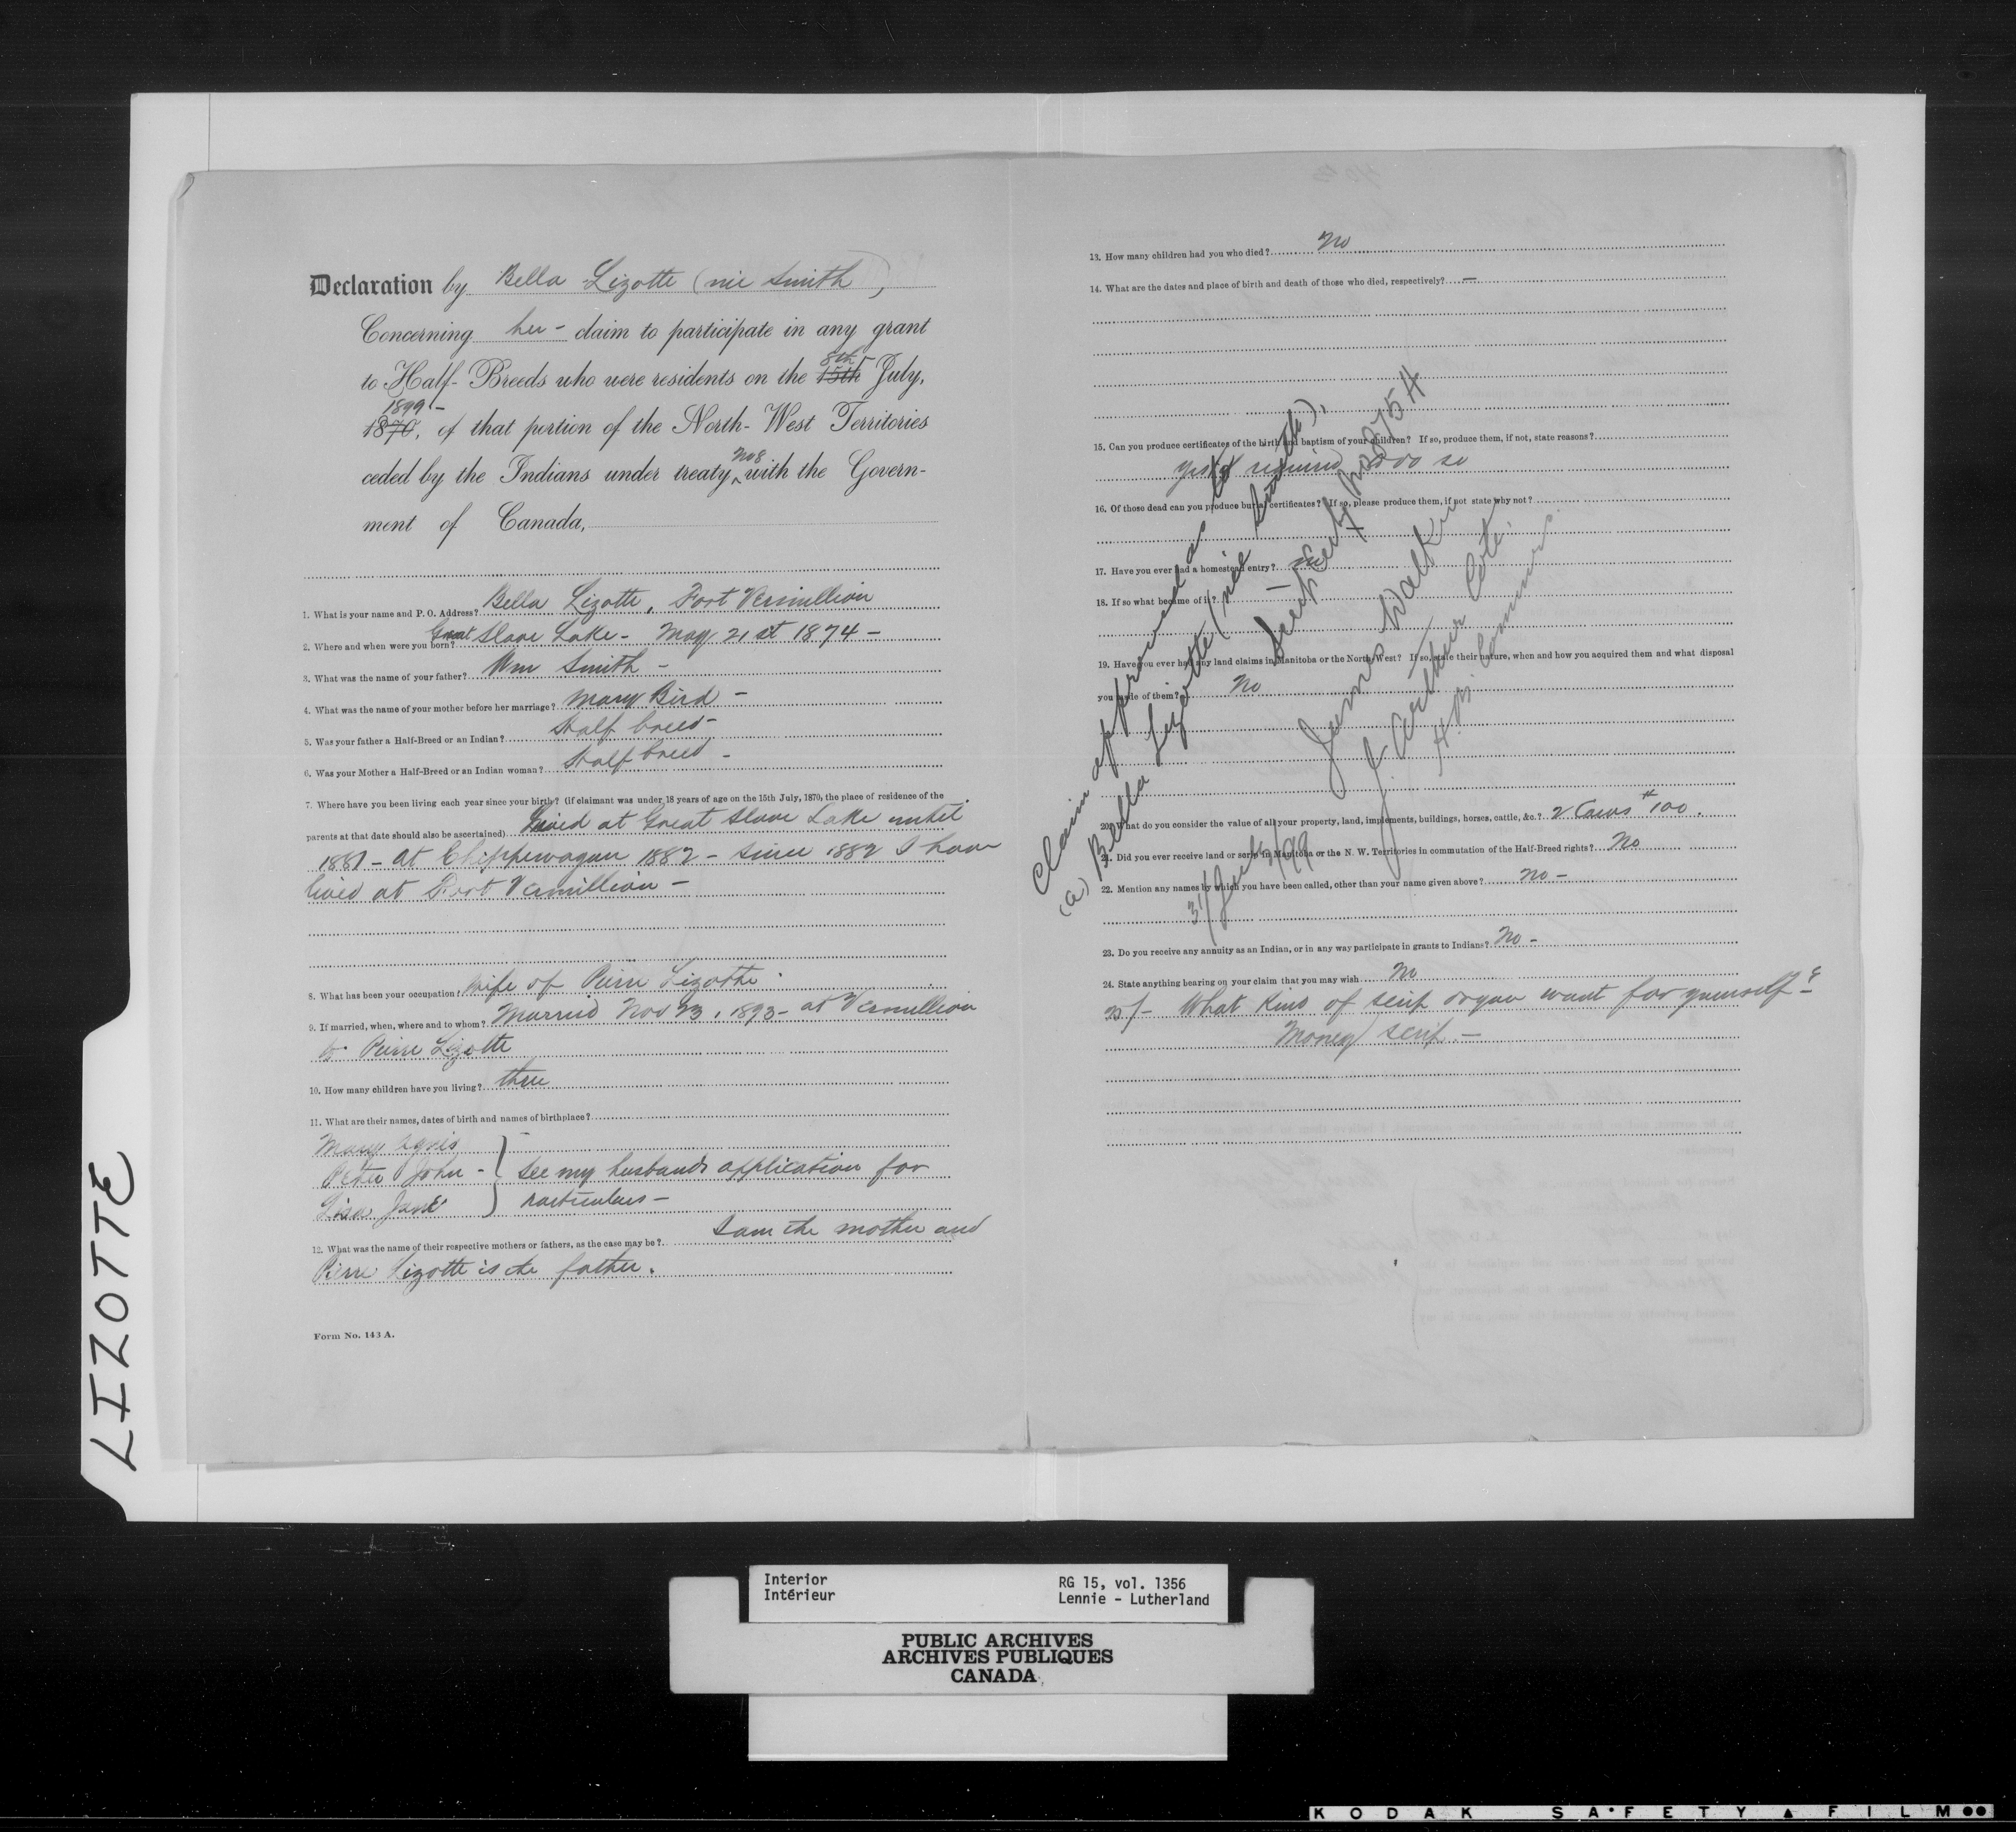 LIZOTTE
Declaration by Bella Lizotte (nie Smith),
Concerning her - claim to participate in any grant
to Half-Breeds who were residents on the 15th 8th July,
1870, 1899 - of that portion of the North-West Territories
ceded by the Indians under treaty No 8 with the Govern-
ment of Canada,
1. What is your name and P. O. Address? Bella Lizotte, Fort Vermillion
2. Where and when were you born? Great Slave Lake - May 21st 1874 -
3. What was the name of your father? Wm Smith -
4. What was the name of your mother before her marriage? Mary Bird -
5. Was your father a Half-Breed or an Indian? Half breed -
6. Was your Mother a Half-Breed or an Indian woman? Half breed -
7. Where have you been living each year since your birth? (if claimant was under 18 years of age on the 15th July, 1870, the place of residence of the
parents at that date should also be ascertained) Lived at Great Slave Lake until
1881 - at Chippewayan 1882 - Since 1882 I have
lived at Fort Vermillion -
8. What has been your occupation? Wife of Pierre Lizotte.
9. If married, when, where and to whom? Married Nov 23, 1893 - at Vermillion
to Pierre Lizotte
10. How many children have you living? three
11. What are their names, dates of birth and names of birthplace?
Mary Agnis
Peter John - } See my husbands application for
Lisa Jane particulars -
12. What was the name of their respective mothers or fathers, as the case may be? I am the mother and
Pierre Lizotte is the father.
Form No. 143 A.
13. How many children had you who died? No
14. What are the dates and place of birth and death of those who died, respectively? -
15. Can you produce certificates of the birth and baptism of your children? If so, produce them, if not, state reasons?
Yes if required do so
16. Of those dead can you produce burial certificates? If so, please produce them, if not state why not?
17. Have you ever had a homestead entry? No
18. If so what became of it? -
19. Have you ever had any land claims in Manitoba or the North-West? If so, state their nature, when and how you acquired them and what disposal
you made of them? No
20. What do you consider the value of all your property, land, implements, buildings, horses, cattle, &c.? 2 Cows $100.
21. Did you ever receive land or scrip in Manitoba or the N. W. Territories in commutation of the Half-Breed rights? No
22. Mention any names by which you have been called, other than your name given above? No -
23. Do you receive any annuity as an Indian, or in any way participate in grants to Indians? No -
24. State anything bearing on your claim that you may wish No
25/- What kind of scrip do you want for yourself?
Money scrip. -
Claim approved as to
(a) Bella Lizotte (nie Smith),
Scrip Certf
James Walker
J. Arthur Coté
H. B. Commrs.
31/July/99
Interior
Intérieur
RG 15, vol. 1356
Lennie - Lutherland
PUBLIC ARCHIVES
ARCHIVES PUBLIQUES
CANADA
KODAK SAFETY FILM